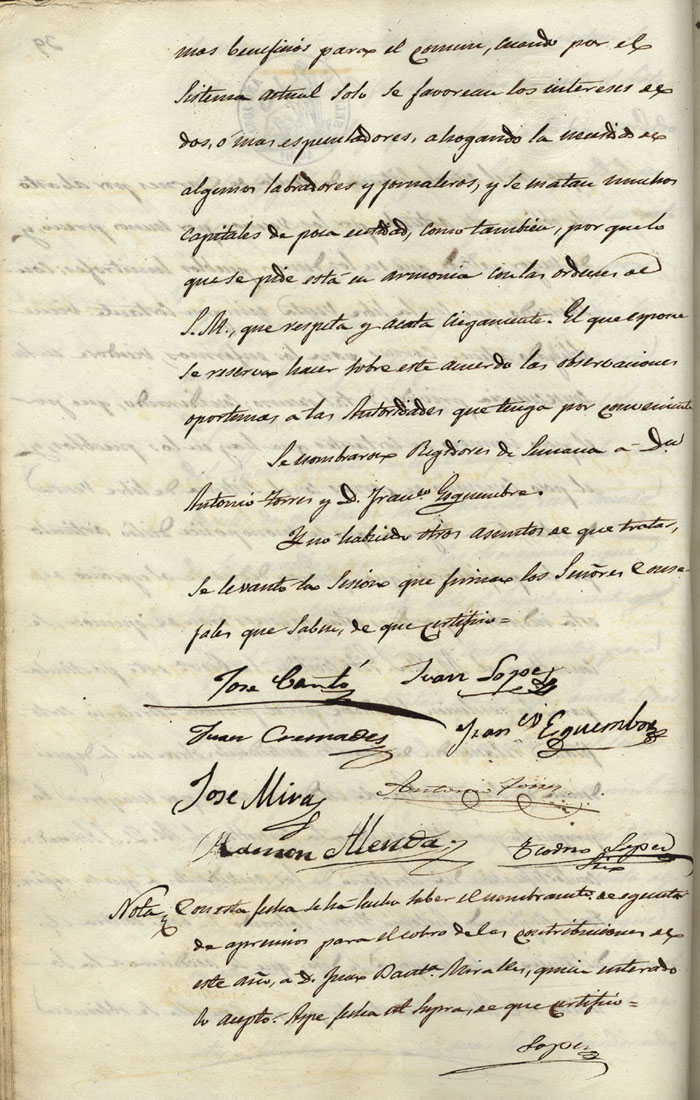 mas beneficios para el comun, cuando por el
Sistema actual solo se favorecen los intereses de
dos, ó mas especuladores, ahogando la de
algunos labradores y jornaleros, y se matan muchos
capitales de poca entidad, como tambien, por que lo
que se pide está en armonia con las ordenes de
S.M., que respeta y acata ciegamente. El que espone
se reserva hacer sobre este acuerdo las observaciones
oportunas a las Autoridades que tenga por conveniente
Se nombraron Regidores de Semana á Dn
Antonio Torres y D. Franco. Esquembre.
Y no habiendo otros asuntos de que tratar,
se levantó la Sesion que firman los Señores Conce-
jales que saben, de que certifico=
Jose Cantó Juan Lopez
Juan Cremades Franco Esquembre
Jose Mira Antonio Torres
Ramon Alenda Teodoro Lopez
Nota Con esta fecha se há hecho saber el nombramto. de egecutor
de apremios para el cobro de las contribuciones de
este año, a D. Juan Bauta. Miralles, quien enterado
lo aceptó. fecha ut Supra, de que certifico=
Lopez